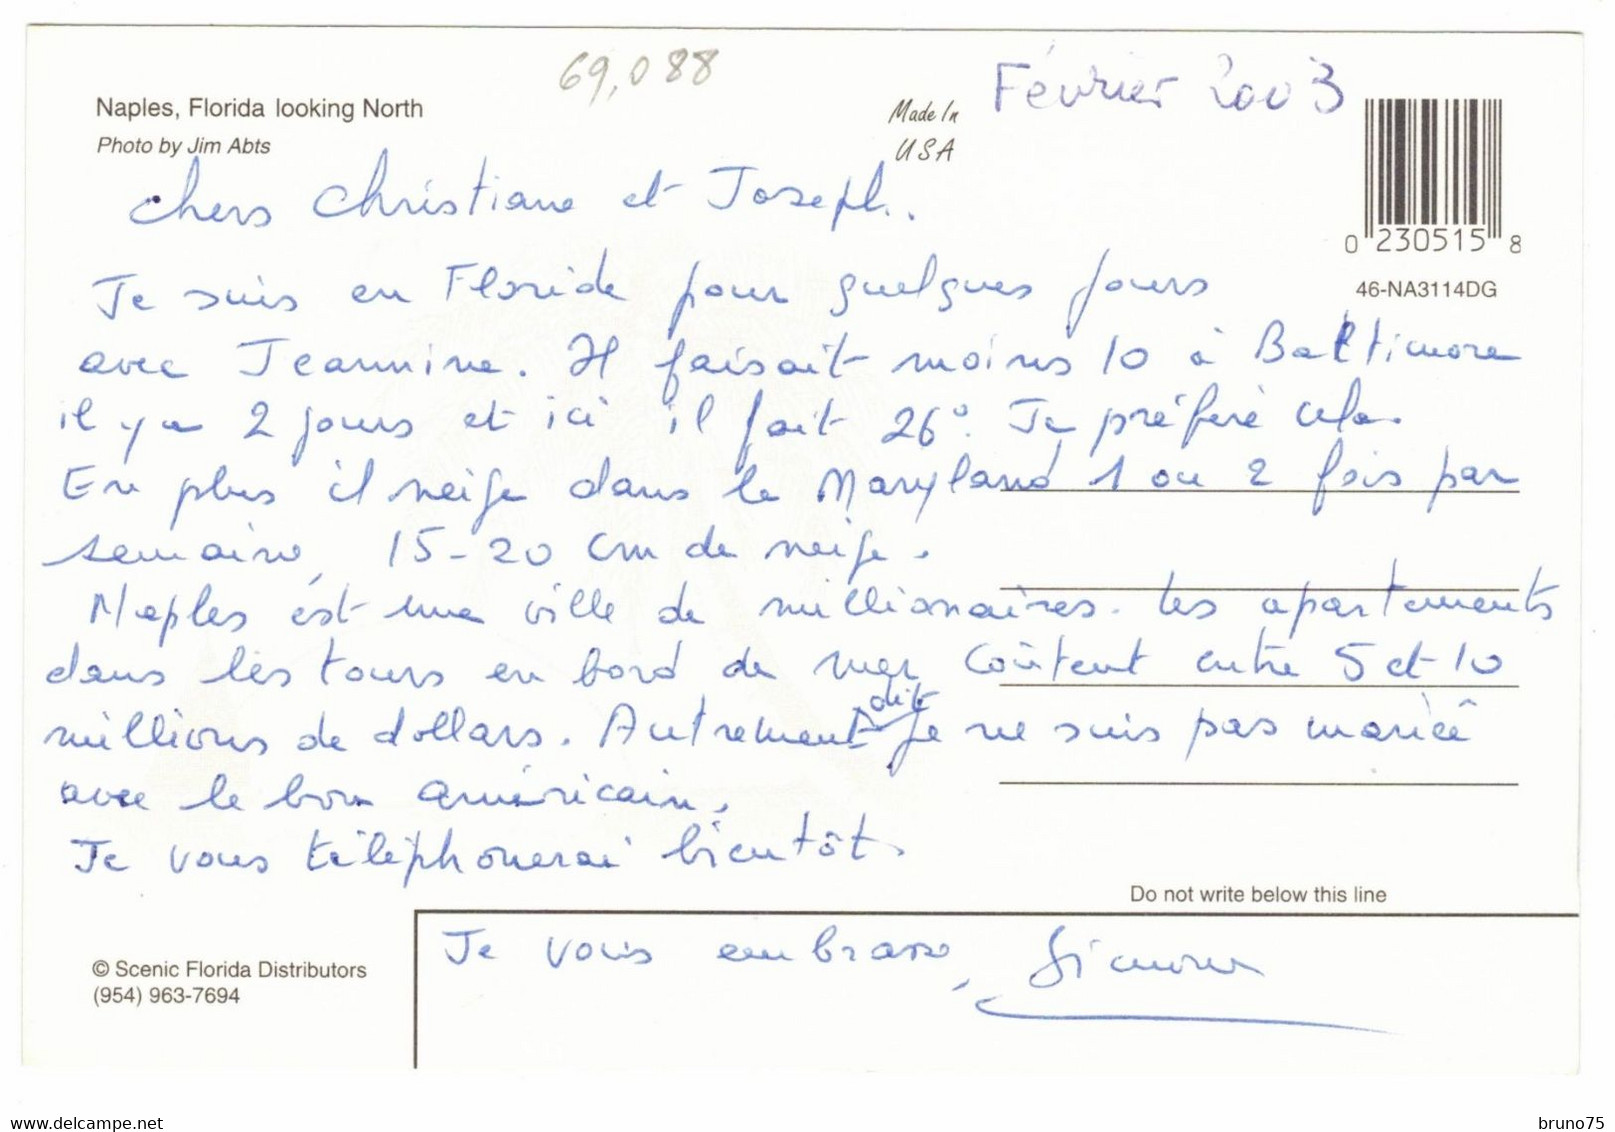 69,088
Février 2003
Naples, Florida looking North
Photo by Jim Abts
Made In
USA
0 230515 8
46-NA3114DG
Chers Christiane et Joseph..
Je suis en Floride pour quelques jours
avec Jeannine. Il faisait moins 10 à Baltimore
il y a 2 jours et ici il fait 26°. Je préfère cela.
En plus il neige dans le Maryland 1 ou 2 fois par
semaine, 15-20 cm de neige.
Naples est une ville de millionaires. Les apartements
dans les tours en bord de mer coûtent entre 5 et 10
millions de dollars. Autrement dit je ne suis pas mariée
avec le bon américain.
Je vous téléphonerai bientôt.
Do not write below this line
Je vous embrasse, Simone
© Scenic Florida Distributors
(954) 963-7694
www.delcampe.net
bruno75